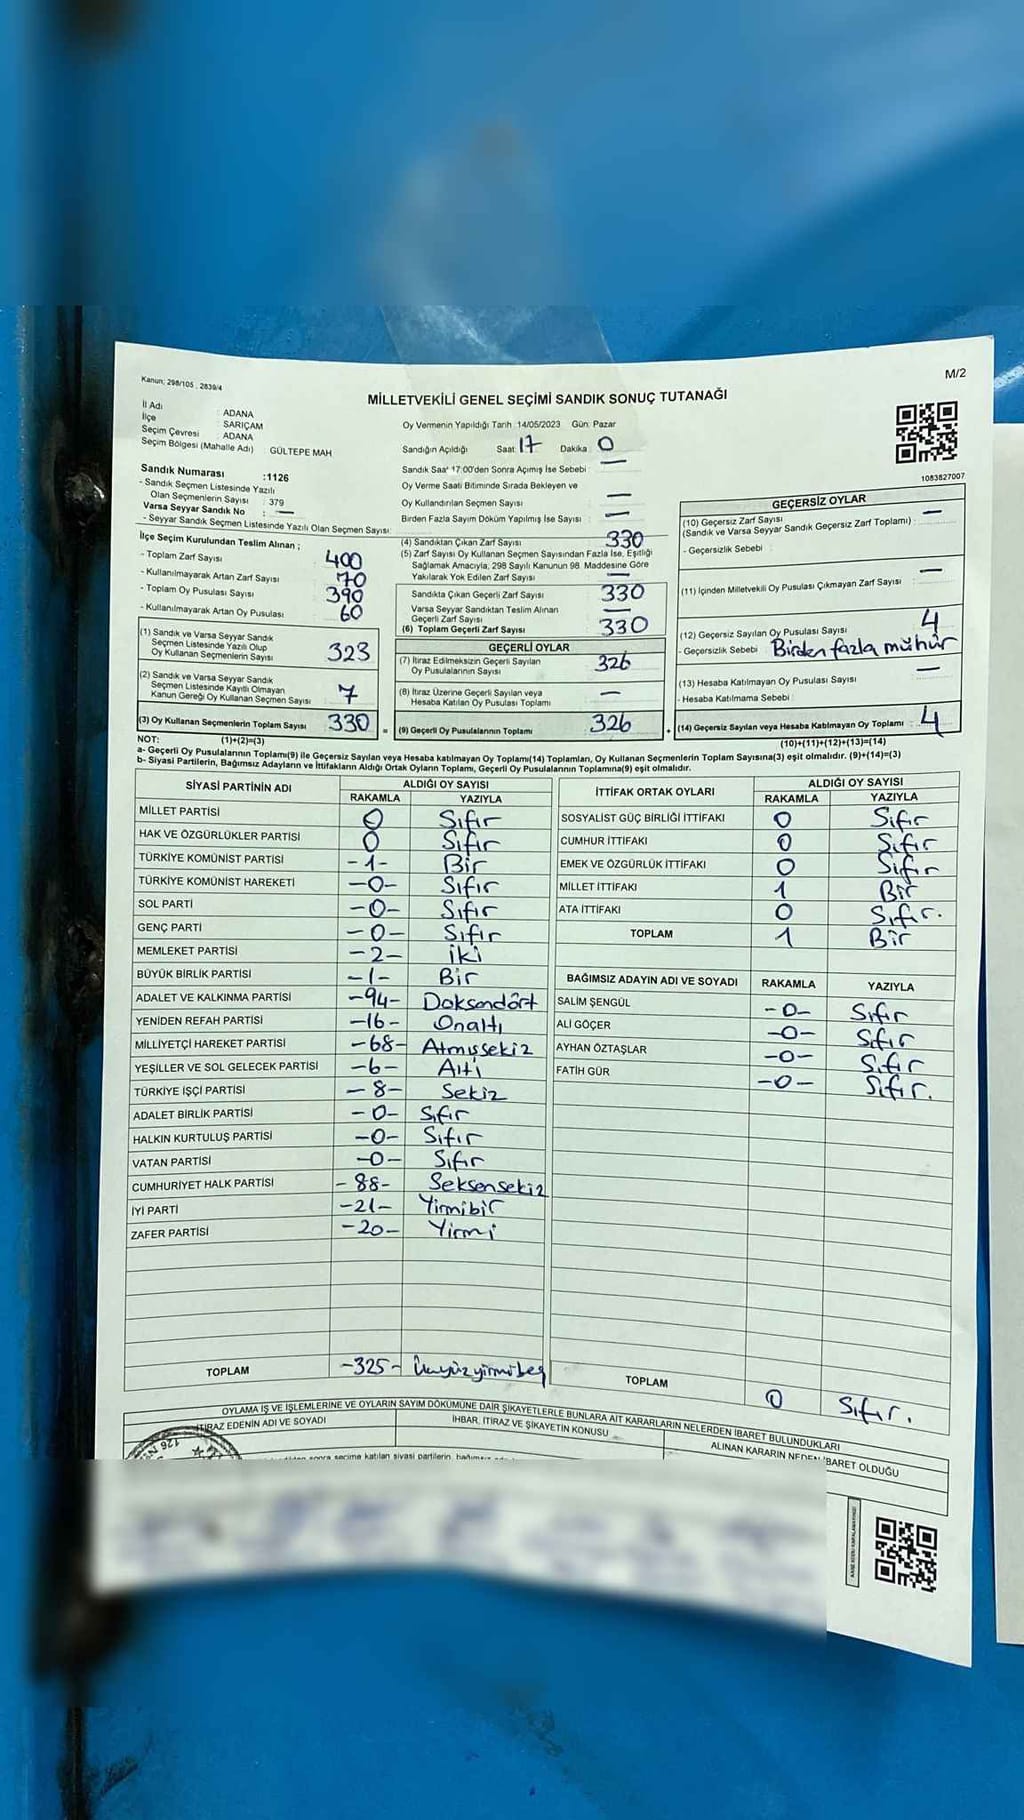 Kanun: 298/105 . 2839/4
M/2
MİLLETVEKİLİ GENEL SEÇİMİ SANDIK SONUÇ TUTANAĞI
İl Adı : ADANA
İlçe : SARIÇAM
Seçim Çevresi : ADANA
Seçim Bölgesi (Mahalle Adı) : GÜLTEPE MAH
Sandık Numarası :1126
- Sandık Seçmen Listesinde Yazılı
Olan Seçmenlerin Sayısı : 379
Varsa Seyyar Sandık No : —
- Seyyar Sandık Seçmen Listesinde Yazılı Olan Seçmen Sayısı:
Oy Vermenin Yapıldığı Tarih :14/05/2023 Gün: Pazar
Sandığın Açıldığı Saat: 17 Dakika: 0
Sandık Saat 17:00'den Sonra Açımış İse Sebebi : —
Oy Verme Saati Bitiminde Sırada Bekleyen ve
Oy Kullandırılan Seçmen Sayısı : —
Birden Fazla Sayım Döküm Yapılmış İse Sayısı : —
1083827007
İlçe Seçim Kurulundan Teslim Alınan ;
- Toplam Zarf Sayısı : 400
- Kullanılmayarak Artan Zarf Sayısı : 70
- Toplam Oy Pusulası Sayısı : 390
- Kullanılmayarak Artan Oy Pusulası : 60
(1) Sandık ve Varsa Seyyar Sandık
Seçmen Listesinde Yazılı Olup
Oy Kullanan Seçmenlerin Sayısı 323
(2) Sandık ve Varsa Seyyar Sandık
Seçmen Listesinde Kayıtlı Olmayan
Kanun Gereği Oy Kullanan Seçmen Sayısı 7
(3) Oy Kullanan Seçmenlerin Toplam Sayısı 330
(4) Sandıktan Çıkan Zarf Sayısı : 330
(5) Zarf Sayısı Oy Kullanan Seçmen Sayısından Fazla İse, Eşitliği
Sağlamak Amacıyla, 298 Sayılı Kanunun 98. Maddesine Göre
Yakılarak Yok Edilen Zarf Sayısı : —
Sandıkta Çıkan Geçerli Zarf Sayısı : 330
Varsa Seyyar Sandıktan Teslim Alınan
Geçerli Zarf Sayısı : —
(6) Toplam Geçerli Zarf Sayısı : 330
GEÇERLİ OYLAR
(7) İtiraz Edilmeksizin Geçerli Sayılan
Oy Pusulalarının Sayısı : 326
(8) İtiraz Üzerine Geçerli Sayılan veya
Hesaba Katılan Oy Pusulası Toplamı : —
= (9) Geçerli Oy Pusulalarının Toplamı : 326
GEÇERSİZ OYLAR
(10) Geçersiz Zarf Sayısı
(Sandık ve Varsa Seyyar Sandık Geçersiz Zarf Toplamı) : —
- Geçersizlik Sebebi :
(11) İçinden Milletvekili Oy Pusulası Çıkmayan Zarf Sayısı : —
(12) Geçersiz Sayılan Oy Pusulası Sayısı : 4
- Geçersizlik Sebebi : Birden fazla mühür
(13) Hesaba Katılmayan Oy Pusulası Sayısı : —
- Hesaba Katılmama Sebebi :
+ (14) Geçersiz Sayılan veya Hesaba Katılmayan Oy Toplamı : 4
NOT: (1)+(2)=(3) (10)+(11)+(12)+(13)=(14)
a- Geçerli Oy Pusulalarının Toplamı(9) ile Geçersiz Sayılan veya Hesaba katılmayan Oy Toplamı(14) Toplamları, Oy Kullanan Seçmenlerin Toplam Sayısına(3) eşit olmalıdır. (9)+(14)=(3)
b- Siyasi Partilerin, Bağımsız Adayların ve İttifakların Aldığı Ortak Oyların Toplamı, Geçerli Oy Pusulalarının Toplamına(9) eşit olmalıdır.
SİYASİ PARTİNİN ADI ALDIĞI OY SAYISI
RAKAMLA YAZIYLA
MİLLET PARTİSİ 0 Sıfır
HAK VE ÖZGÜRLÜKLER PARTİSİ 0 Sıfır
TÜRKİYE KOMÜNİST PARTİSİ -1- Bir
TÜRKİYE KOMÜNİST HAREKETİ -0- Sıfır
SOL PARTİ -0- Sıfır
GENÇ PARTİ -0- Sıfır
MEMLEKET PARTİSİ -2- İki
BÜYÜK BİRLİK PARTİSİ -1- Bir
ADALET VE KALKINMA PARTİSİ -94- Doksandört
YENİDEN REFAH PARTİSİ -16- Onaltı
MİLLİYETÇİ HAREKET PARTİSİ -68- Atmışsekiz
YEŞİLLER VE SOL GELECEK PARTİSİ -6- Altı
TÜRKİYE İŞÇİ PARTİSİ -8- Sekiz
ADALET BİRLİK PARTİSİ -0- Sıfır
HALKIN KURTULUŞ PARTİSİ -0- Sıfır
VATAN PARTİSİ -0- Sıfır
CUMHURİYET HALK PARTİSİ -88- Seksensekiz
İYİ PARTİ -21- Yirmibir
ZAFER PARTİSİ -20- Yirmi
TOPLAM -325- Üçyüzyirmibeş
İTTİFAK ORTAK OYLARI ALDIĞI OY SAYISI
RAKAMLA YAZIYLA
SOSYALİST GÜÇ BİRLİĞİ İTTİFAKI 0 Sıfır
CUMHUR İTTİFAKI 0 Sıfır
EMEK VE ÖZGÜRLÜK İTTİFAKI 0 Sıfır
MİLLET İTTİFAKI 1 Bir
ATA İTTİFAKI 0 Sıfır.
TOPLAM 1 Bir
BAĞIMSIZ ADAYIN ADI VE SOYADI RAKAMLA YAZIYLA
SALİM ŞENGÜL -0- Sıfır
ALİ GÖÇER -0- Sıfır
AYHAN ÖZTAŞLAR -0- Sıfır
FATİH GÜR -0- Sıfır.
TOPLAM 0 Sıfır.
OYLAMA İŞ VE İŞLEMLERİNE VE OYLARIN SAYIM DÖKÜMÜNE DAİR ŞİKAYETLERLE BUNLARA AİT KARARLARIN NELERDEN İBARET BULUNDUKLARI
İTİRAZ EDENİN ADI VE SOYADI İHBAR, İTİRAZ VE ŞİKAYETİN KONUSU ALINAN KARARIN NEDEN İBARET OLDUĞU
sonra seçime katılan siyasi partilerin, bağımsız